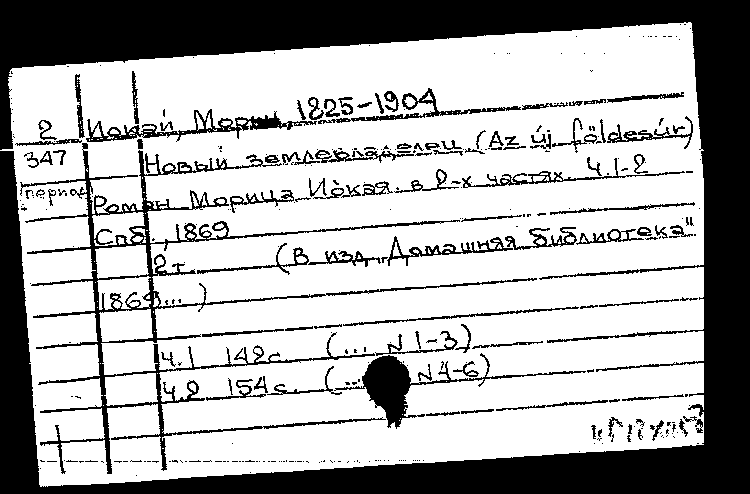 2 Иокай, Мориц, 1825-1904
347 Новый землевладелец (Az új földesúr)
[период] Роман Морица Иокая в 2-х частях. Ч.1-2
Спб., 1869
2т. (В изд. "Домашняя библиотека"
1869...)
ч.1 142с. (... N 1-3)
ч.2 154с. (... N 4-6)